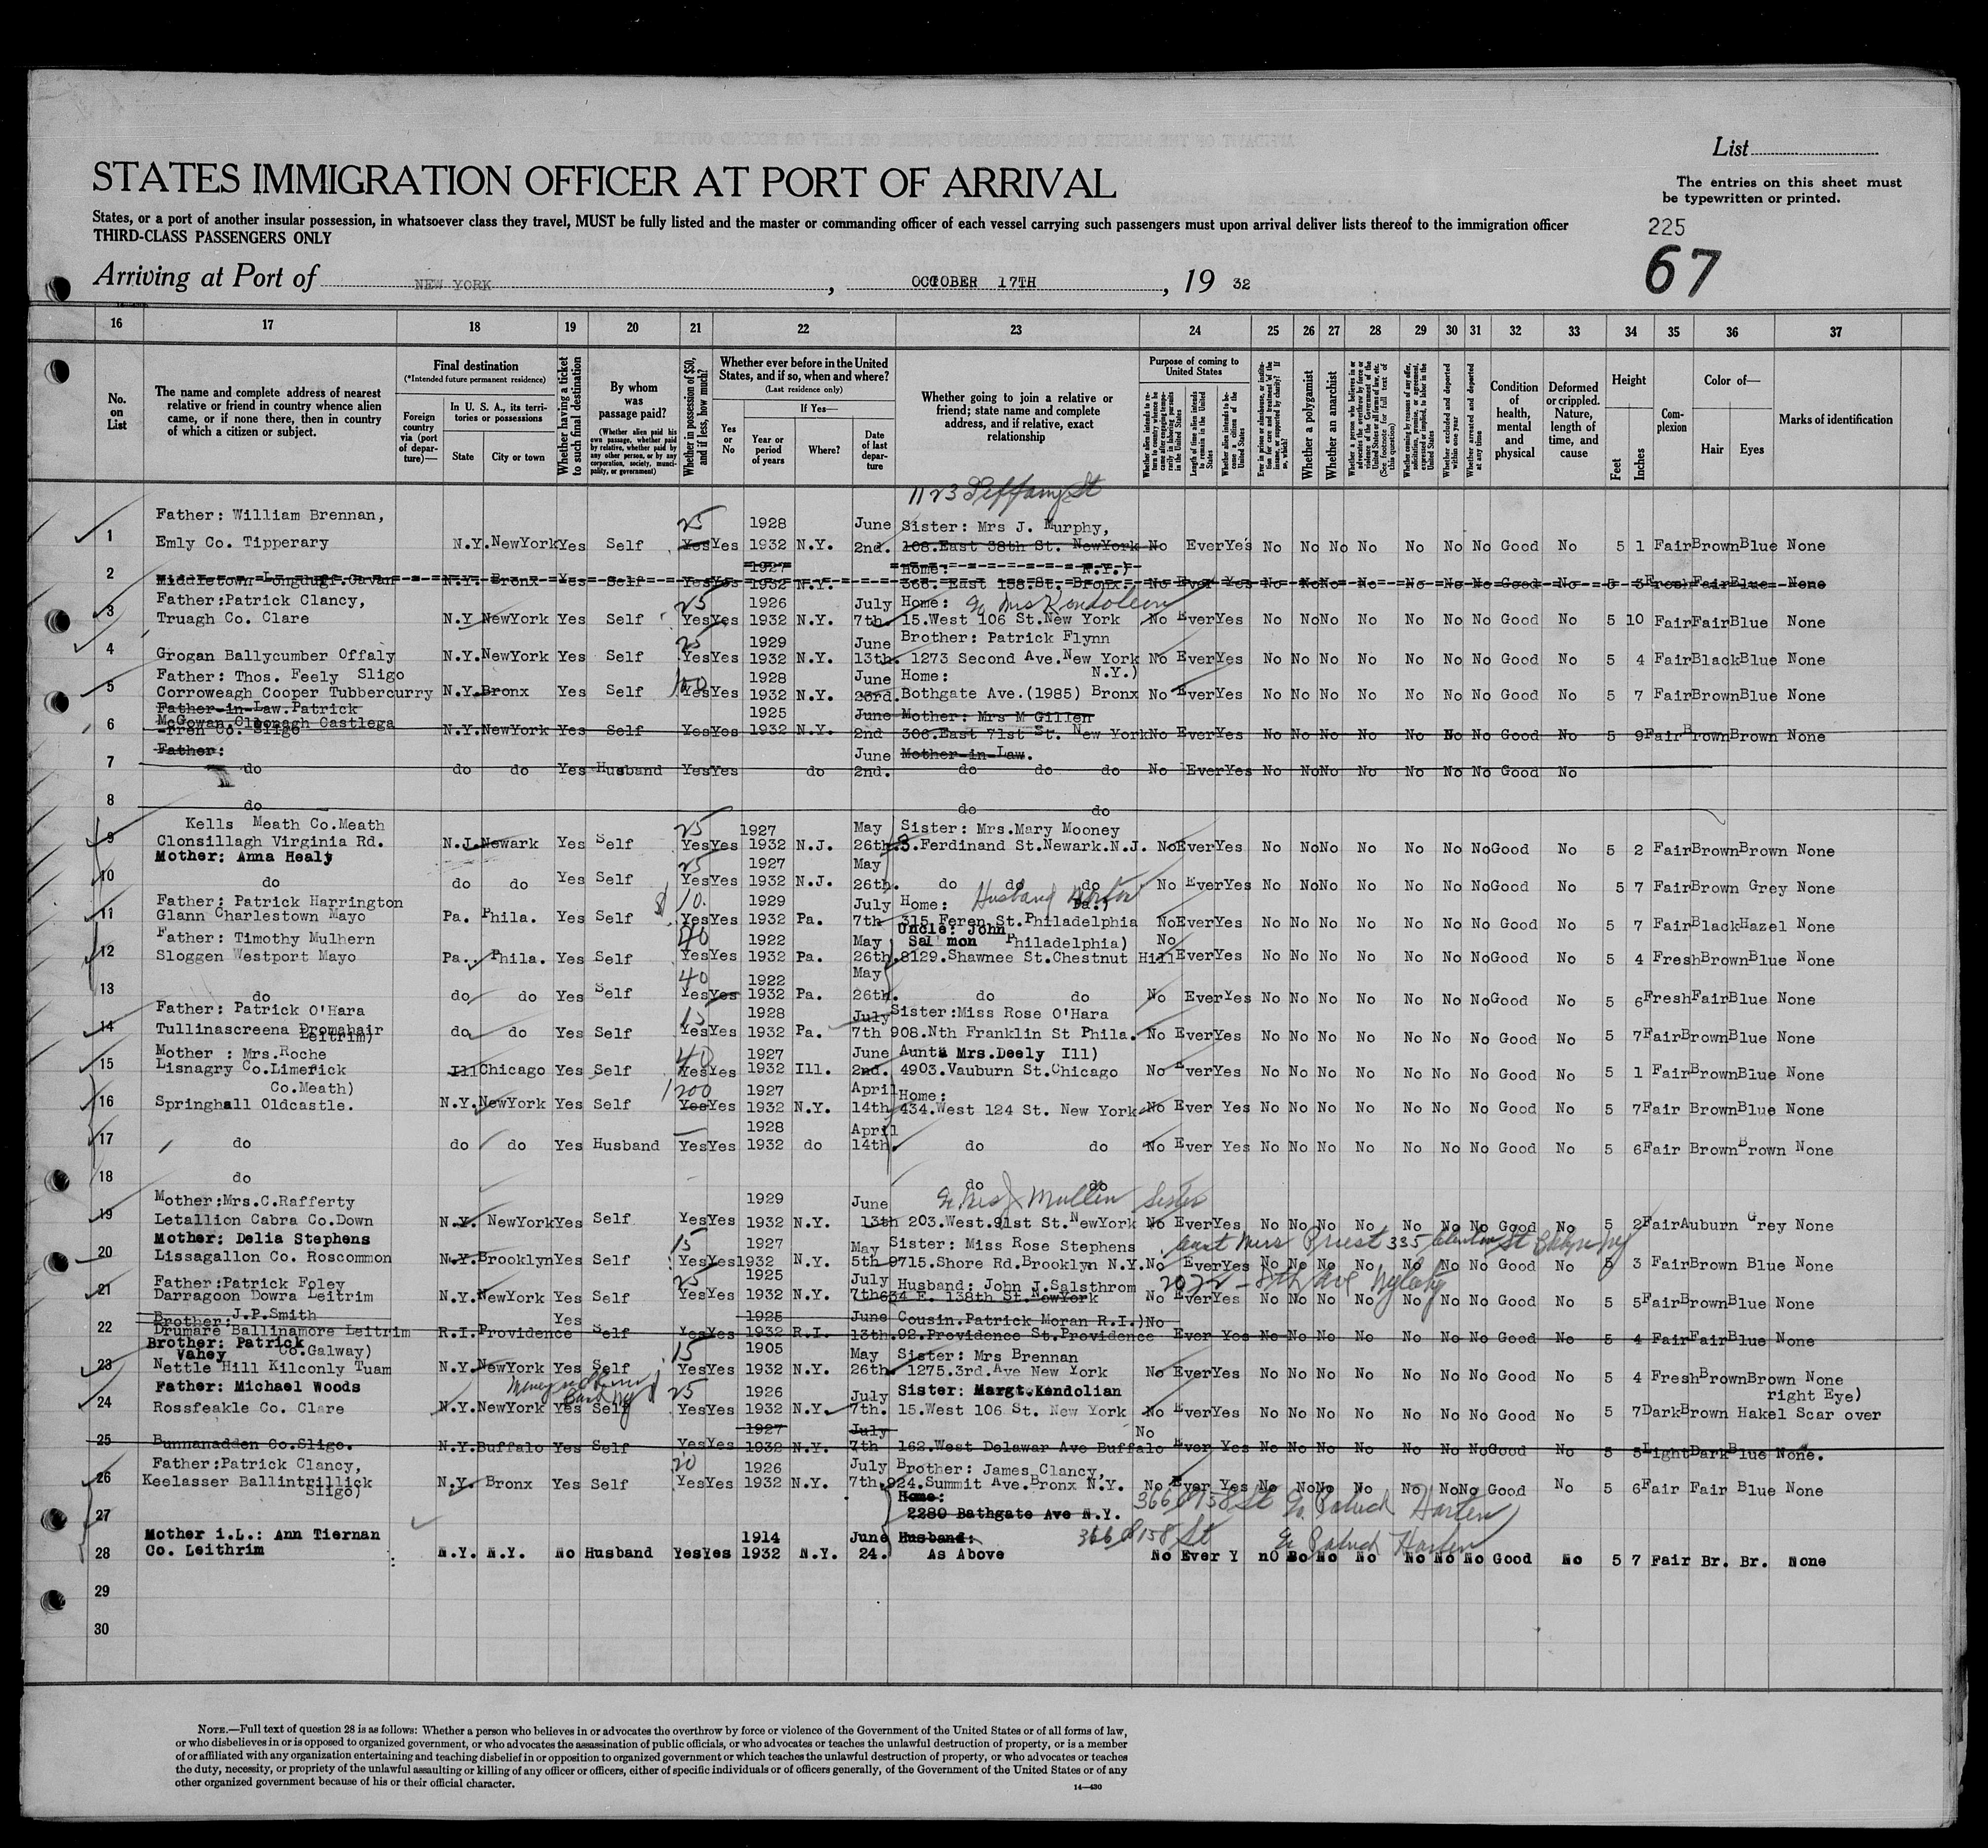 List
STATES IMMIGRATION OFFICER AT PORT OF ARRIVAL
The entries on this sheet must
be typewritten or printed.
States, or a port of another insular possession, in whatsoever class they travel, MUST be fully listed and the master or commanding officer of each vessel carrying such passengers must upon arrival deliver lists thereof to the immigration officer
THIRD-CLASS PASSENGERS ONLY
225
67
Arriving at Port of NEW YORK, OCTOBER 17TH, 19 32
16 17 18 19 20 21 22 23 24 25 26 27 28 29 30 31 32 33 34 35 36 37
No. on List
The name and complete address of nearest relative or friend in country whence alien came, or if none there, then in country of which a citizen or subject.
Final destination
(*Intended future permanent residence)
Foreign country via (port of departure)—
In U. S. A., its territories or possessions
State
City or town
Whether having a ticket to such final destination
By whom was passage paid?
(Whether alien paid his own passage, whether paid by relative, whether paid by any other person, or by any corporation, society, municipality, or government)
Whether in possession of $50, and if less, how much?
Whether ever before in the United States, and if so, when and where?
(Last residence only)
Yes or No
If Yes—
Year or period of years
Where?
Date of last departure
Whether going to join a relative or friend; state name and complete address, and if relative, exact relationship
Purpose of coming to United States
Whether alien intends to return to country whence he came after engaging temporarily in laboring pursuits in the United States
Length of time alien intends to remain in the United States
Whether alien intends to become a citizen of the United States
Ever in prison or almshouse, or institution for care and treatment of the insane, or supported by charity? If so, which?
Whether a polygamist
Whether an anarchist
Whether a person who believes in or advocates the overthrow by force or violence of the Government of the United States or all forms of law, etc. (See footnote for full text of this question)
Whether coming by reason of any offer, solicitation, promise, or agreement, expressed or implied, to labor in the United States
Whether excluded and deported within one year
Whether arrested and deported at any time
Condition of health, mental and physical
Deformed or crippled. Nature, length of time, and cause
Height
Feet
Inches
Complexion
Color of—
Hair
Eyes
Marks of identification
1123 St
Father: William Brennan, 25 1928 June Sister: Mrs J. Murphy,
1 Emly Co. Tipperary N.Y. NewYork Yes Self Yes Yes 1932 N.Y. 2nd. 108.East 38th St. NewYork No Ever Yes No No No No No No No Good No 5 1 Fair Brown Blue None
1927 Home: N.Y.)
2 Middletown Longduff.Cavan N.Y. Bronx Yes Self Yes Yes 1932 N.Y. 366. East 158.St. Bronx. No Ever Yes No No No No No No No Good No 5 3 Fresh Fair Blue None
Father:Patrick Clancy, 25 1926 July Home: c/o Mrs Kendoleen
3 Truagh Co. Clare N.Y. NewYork Yes Self Yes Yes 1932 N.Y. 7th. 15.West 106 St.New York No Ever Yes No No No No No No No Good No 5 10 Fair Fair Blue None
25 1929 June Brother: Patrick Flynn
4 Grogan Ballycumber Offaly N.Y. NewYork Yes Self Yes Yes 1932 N.Y. 13th. 1273 Second Ave.New York No Ever Yes No No No No No No No Good No 5 4 Fair Black Blue None
Father: Thos. Feely Sligo 100 1928 June Home: N.Y.)
5 Corroweagh Cooper Tubbercurry N.Y. Bronx Yes Self Yes Yes 1932 N.Y. 23rd. Bothgate Ave.(1985) Bronx No Ever Yes No No No No No No No Good No 5 7 Fair Brown Blue None
Father-in-Law.Patrick
McGowan,Cloonagh Castlega 1925 June Mother: Mrs M Gillen
6 -rren Co. Sligo N.Y. NewYork Yes Self Yes Yes 1932 N.Y. 2nd 306.East 71st St. New York No Ever Yes No No No No No No No Good No 5 9 Fair Brown Brown None
Father: June Mother-in-Law.
7 do do do Yes Husband Yes Yes do 2nd. do do do No Ever Yes No No No No No No No Good No
8 do do do
Kells Meath Co.Meath 25 1927 May Sister: Mrs.Mary Mooney
9 Clonsillagh Virginia Rd. N.J. Newark Yes Self Yes Yes 1932 N.J. 26th. 3.Ferdinand St.Newark.N.J. No Ever Yes No No No No No No No Good No 5 2 Fair Brown Brown None
Mother: Anna Healy 25 1927 May
10 do do do Yes Self Yes Yes 1932 N.J. 26th. do do do No Ever Yes No No No No No No No Good No 5 7 Fair Brown Grey None
Father: Patrick Harrington $10. 1929 July Home: Husband Pa.)
11 Glann Charlestown Mayo Pa. Phila. Yes Self Yes Yes 1932 Pa. 7th 315.Feren St.Philadelphia No Ever Yes No No No No No No No Good No 5 7 Fair Black Hazel None
Father: Timothy Mulhern 40 1922 May Uncle: John Salmon Philadelphia) No
12 Sloggen Westport Mayo Pa. Phila. Yes Self Yes Yes 1932 Pa. 26th. 8129.Shawnee St.Chestnut Hill Ever Yes No No No No No No No Good No 5 4 Fresh Brown Blue None
40 1922 May
13 do do do Yes Self Yes Yes 1932 Pa. 26th. do do No Ever Yes No No No No No No No Good No 5 6 Fresh Fair Blue None
Father: Patrick O'Hara 15 1928 July Sister:Miss Rose O'Hara
14 Tullinascreena Dromahair Leitrim) do do Yes Self Yes Yes 1932 Pa. 7th 908.Nth Franklin St Phila. No Ever Yes No No No No No No No Good No 5 7 Fair Brown Blue None
Mother : Mrs.Roche 40 1927 June Aunt: Mrs.Deely Ill)
15 Lisnagry Co.Limerick Ill Chicago Yes Self Yes Yes 1932 Ill. 2nd. 4903.Vauburn St.Chicago No Ever Yes No No No No No No No Good No 5 1 Fair Brown Blue None
Co.Meath) 1200 1927 April Home:
16 Springhall Oldcastle. N.Y. NewYork Yes Self Yes Yes 1932 N.Y. 14th. 434.West 124 St. New York No Ever Yes No No No No No No No Good No 5 7 Fair Brown Blue None
1928 April
17 do do do Yes Husband Yes Yes 1932 do 14th. do do No Ever Yes No No No No No No No Good No 5 6 Fair Brown Brown None
18 do do do
Mother:Mrs.C.Rafferty 1929 June c/o Mrs J Mullen Sister
19 Letallion Cabra Co.Down N.Y. NewYork Yes Self Yes Yes 1932 N.Y. 13th 203.West.91st St.NewYork No Ever Yes No No No No No No No Good No 5 2 Fair Auburn Grey None
Mother: Delia Stephens 15 1927 May Sister: Miss Rose Stephens Miss Priest 335 Clinton St Bklyn NY
20 Lissagallon Co. Roscommon N.Y. Brooklyn Yes Self Yes Yes 1932 N.Y. 5th 9715.Shore Rd.Brooklyn N.Y. No Ever Yes No No No No No No No Good No 5 3 Fair Brown Blue None
Father:Patrick Foley 25 1925 July Husband: John J.Salsthrom 2072 - 8th Ave NyCity
21 Darragoon Dowra Leitrim N.Y. NewYork Yes Self Yes Yes 1932 N.Y. 7th 634 E. 138th St.NewYork No Ever Yes No No No No No No No Good No 5 5 Fair Brown Blue None
Brother: J.P.Smith Yes 1925 June Cousin.Patrick Moran R.I.) No
22 Drumare Ballinamore Leitrim R.I. Providence Self Yes Yes 1932 R.I. 13th. 92.Providence St.Providence Ever Yes No No No No No No No Good No 5 4 Fair Fair Blue None
Brother: Patrick Vahey Co.Galway) 15 1905 May Sister: Mrs Brennan
23 Nettle Hill Kilconly Tuam N.Y. NewYork Yes Self Yes Yes 1932 N.Y. 26th. 1275.3rd.Ave New York No Ever Yes No No No No No No No Good No 5 4 Fresh Brown Brown None
Father: Michael Woods Money in Bank NY $25 1926 July Sister: Margt.Kendolian right Eye)
24 Rossfeakle Co. Clare N.Y. NewYork Yes Self Yes Yes 1932 N.Y. 7th. 15.West 106 St. New York No Ever Yes No No No No No No No Good No 5 7 Dark Brown Hakel Scar over
1927 July No
25 Bunnanadden Co.Sligo. N.Y. Buffalo Yes Self Yes Yes 1932 N.Y. 7th 162.West Delawar Ave Buffalo Ever Yes No No No No No No No Good No 5 5 Light Dark Blue None.
Father:Patrick Clancy, 20 1926 July Brother: James Clancy,
26 Keelasser Ballintrillick Sligo) N.Y. Bronx Yes Self Yes Yes 1932 N.Y. 7th. 924.Summit Ave.Bronx N.Y. No Ever Yes No No No No No No No Good No 5 6 Fair Fair Blue None
Home: 366 E 158 St c/o Patrick Harten
27 2280 Bathgate Ave N.Y.
Mother i.L.: Ann Tiernan 1914 June Husband: 366 E 158 St c/o Patrick Harten
28 Co. Leithrim N.Y. N.Y. No Husband Yes Yes 1932 N.Y. 24. As Above No Ever Y nO No No No No No No Good No 5 7 Fair Br. Br. None
29
30
NOTE.—Full text of question 28 is as follows: Whether a person who believes in or advocates the overthrow by force or violence of the Government of the United States or of all forms of law,
or who disbelieves in or is opposed to organized government, or who advocates the assassination of public officials, or who advocates or teaches the unlawful destruction of property, or is a member
of or affiliated with any organization entertaining and teaching disbelief in or opposition to organized government or which teaches the unlawful destruction of property, or who advocates or teaches
the duty, necessity, or propriety of the unlawful assaulting or killing of any officer or officers, either of specific individuals or of officers generally, of the Government of the United States or of any
other organized government because of his or their official character.
14—430